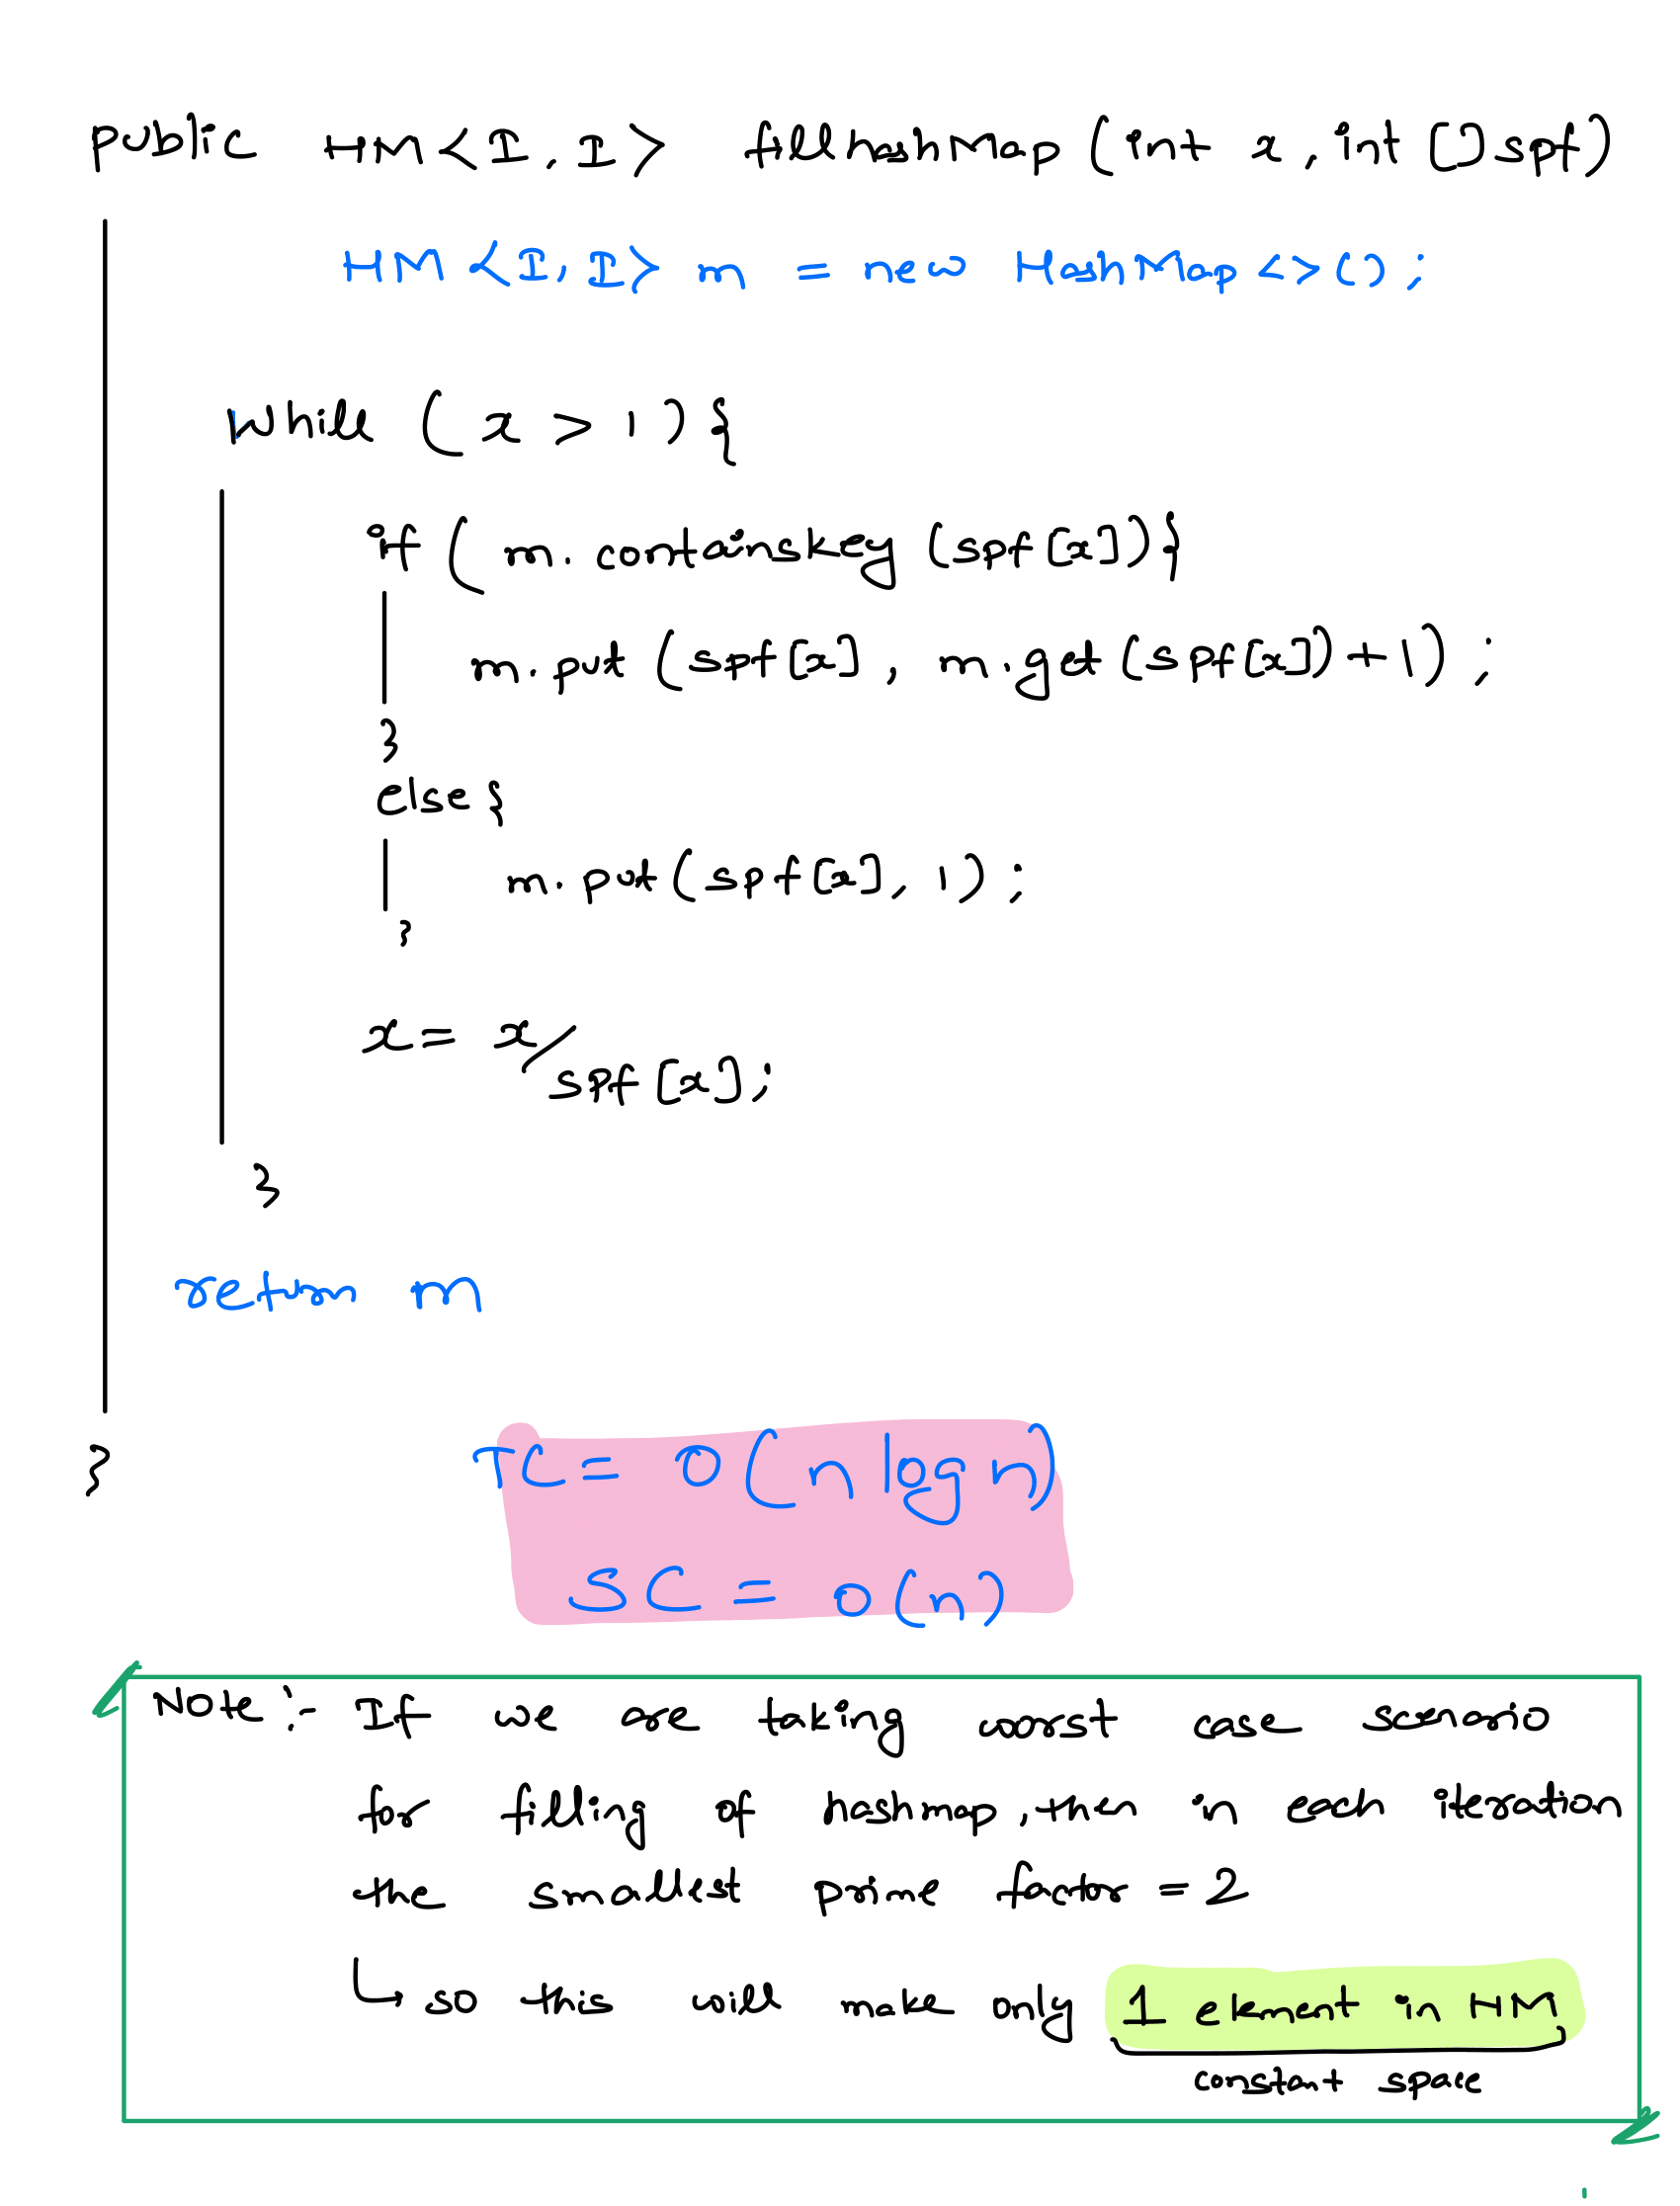 public HM<I, I> fillhashMap (int x, int [] spf)
HM<I, I> m = new HashMap<>();
while (x > 1) {
if (m.containskey (spf[x])}
m.put (spf[x], m.get (spf[x])+1);
}
else {
m.put (spf[x], 1);
}
x = x/
spf[x];
}
return m
}
TC = O(n log n)
SC = O(n)
Note :- If we are taking worst case scenario
for filling of hashmap, then in each iteration
the smallest prime factor = 2
↳ so this will make only 1 element in HM
constant space